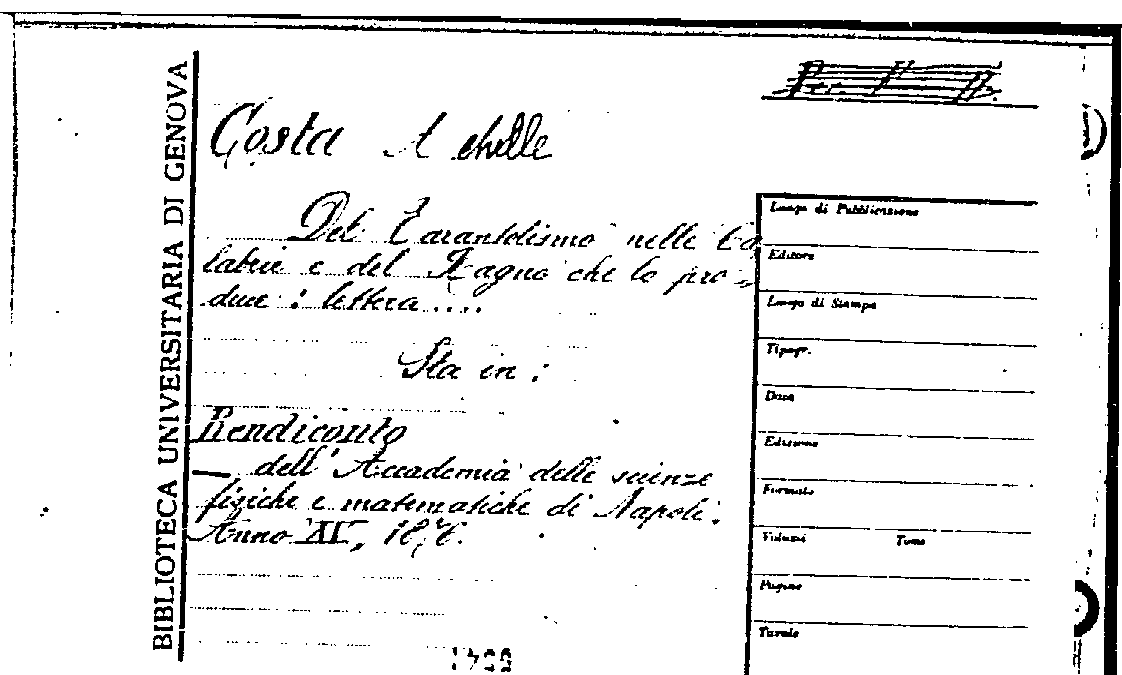 BIBLIOTECA UNIVERSITARIA DI GENOVA
Costa Achille
Del Tarantolismo nelle Ca
labrie e del Ragno che lo pro=
duce : lettera....
Sta in :
Rendiconto
— dell' Accademia delle scienze
fisiche e matematiche di Napoli.
Anno XV, 1876.
Luogo di Pubblicazione
Editore
Luogo di Stampa
Tipogr.
Data
Edizione
Formato
Volumi Tomo
Pagine
Tavole